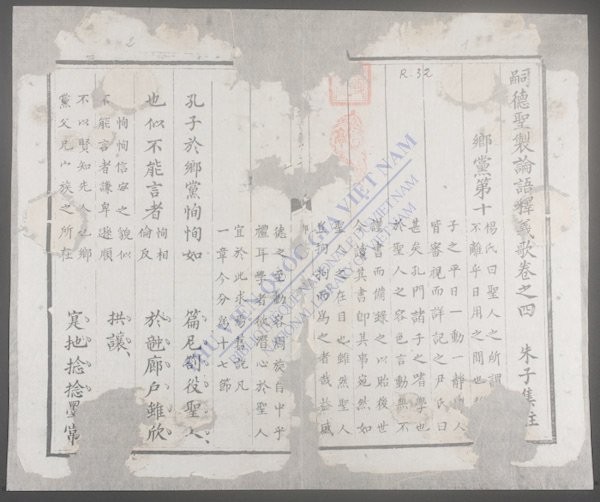 R.32
2
嗣德聖製論語釋義歌卷之四 朱子集註
鄉黨第十
楊氏曰聖人之所謂
不離乎日用之間也
子之平日一動一靜人
皆審視而詳記之尹氏曰
甚矣孔門諸子之嗜學也
於聖人之容色言動無不
謹書而備錄之以貽後世
今讀其書即其事宛然如
聖之在目也雖然聖人
拘拘而為之者哉蓋盛
德之至動容周旋自中乎
禮耳學者欲潛心於聖人
宜於此求焉舊說凡
一章今分為十七節
孔子於鄉黨恂恂如 篇尼劄役聖人
也似不能言者 恂相倫反 於廊户雖欣
恂恂信實之貌似 拱讓
不能言者謙卑遜順
不以賢知先人也鄉 寔地捻捻墨常
黨父兄宗族之所在
THƯ VIỆN QUỐC GIA VIỆT NAM
NATIONAL LIBRARY OF VIETNAM